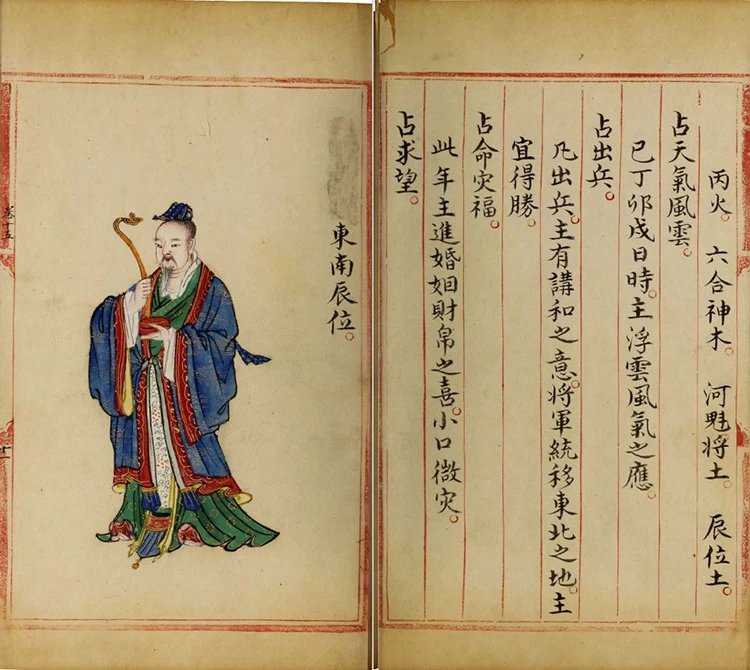 丙火。 六合神木 河魁將土。 辰位土。
占天氣風雲。
已丁卯戌日時。主浮雲風氣之應。
占出兵。
凡出兵。主有講和之意。將軍統移東北之地。主
宜得勝。
占命灾福。
此年主進婚姻財帛之喜。小口微灾。
占求望。
東南辰位。
卷十五